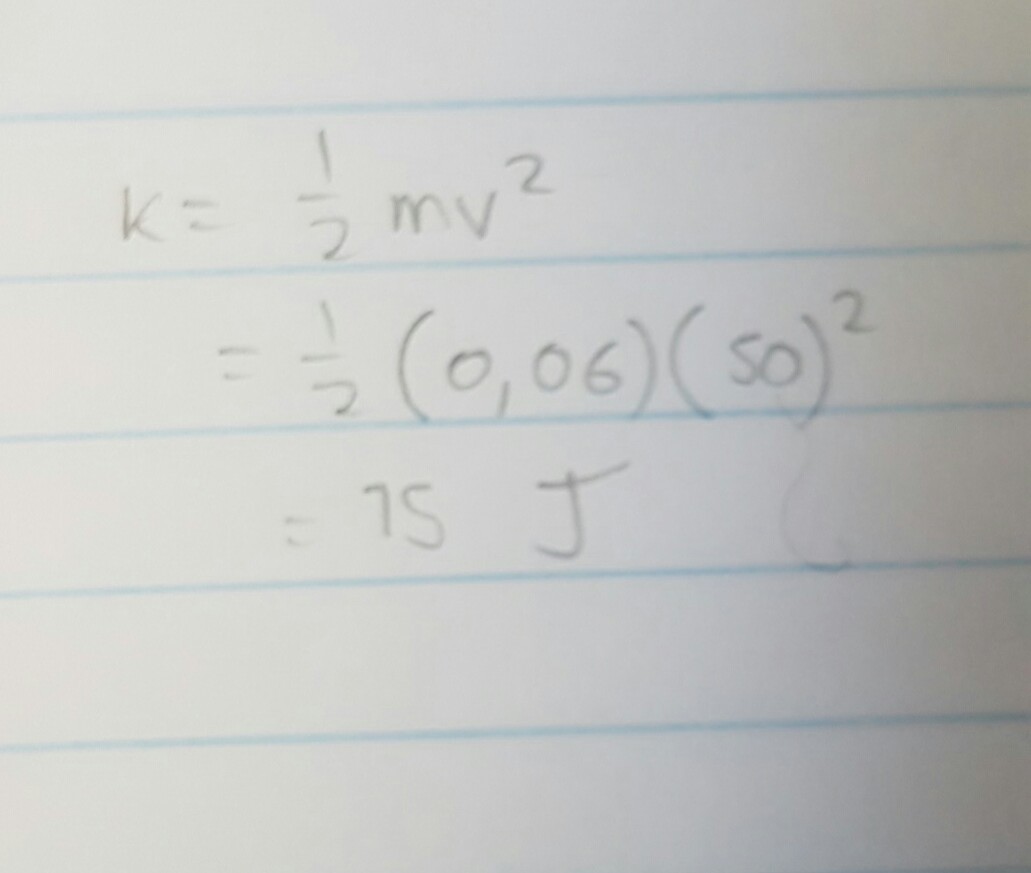 K = 1/2 mv²
= 1/2 (0,06)(50)²
= 75 J